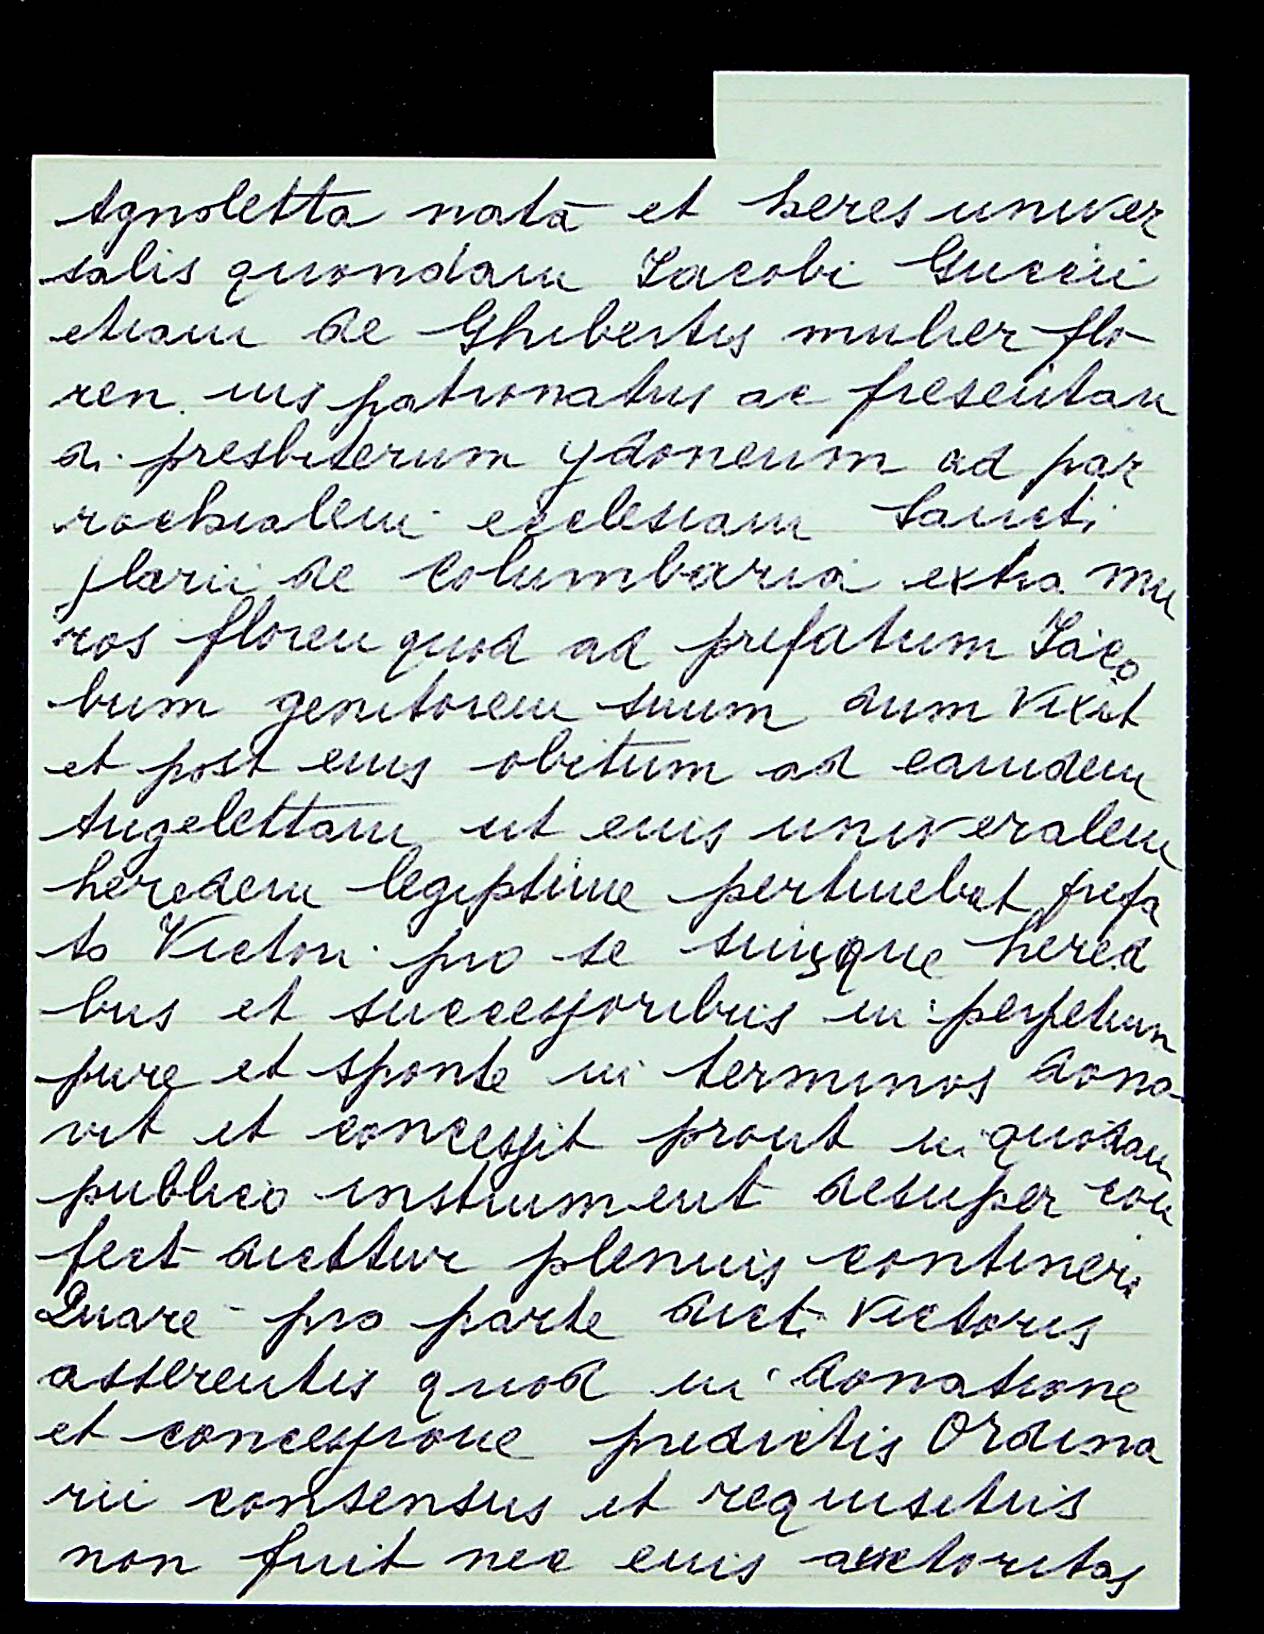 Agnoletta nata et heres univer
salis quondam Iacobi Guccii
etiam de Ghibertis mulier flo-
ren. ius patronatus ac presentan
di presbiterum ydoneum ad par
rochialem ecclesiam Sancti
Ylarii de Columbaria extra mu
ros floren quod ad prefatum Iaco
bum genitorem suum dum vixit
et post eius obitum ad eamdem
Angelettam ut eius univeralem
heredem legiptime pertinebat prefa
to Victori pro se suisque hered
bus et successoribus in perpetuum
pure et sponte in terminos dona-
vit et concessit prout in quodam
publico instrument desuper con
fect dicttur plenius contineri
Quare pro parte dict Victoris
asserentis quod in donatione
et concessione predictis Ordina
rii consensus et requisitus
non fuit nec eius auctoritas